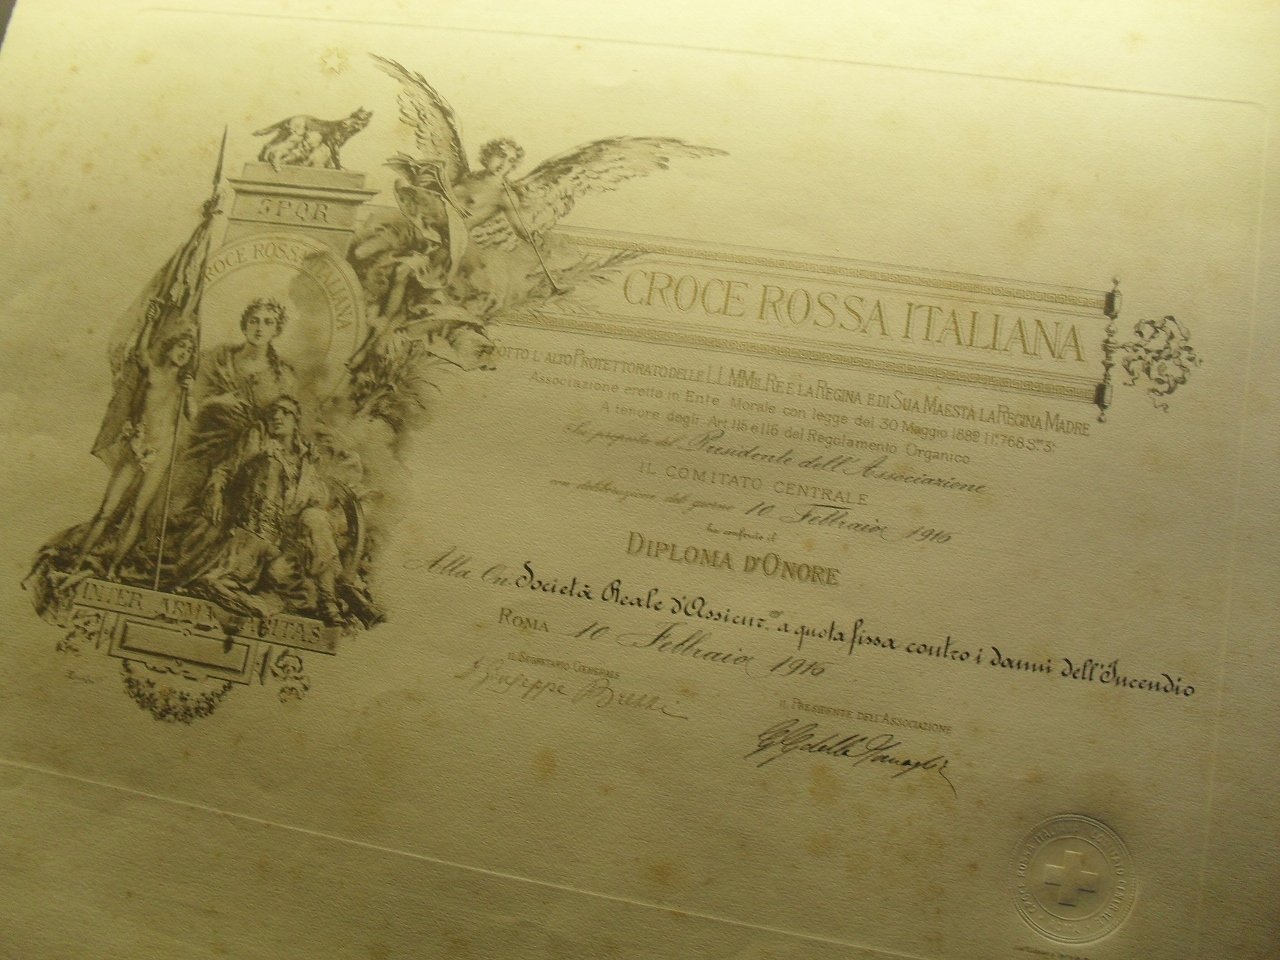 SPQR
CROCE ROSSA ITALIANA
CROCE ROSSA ITALIANA
SOTTO L'ALTO PROTETTORATO DELLE LL.MM. IL RE E LA REGINA E DI SUA MAESTÀ LA REGINA MADRE
Associazione eretta in Ente Morale con legge del 30 Maggio 1882 N.° 768 S.ie 3.a
A tenore degli Art. 115 e 116 del Regolamento Organico
Su proposta del Presidente dell'Associazione
IL COMITATO CENTRALE
con deliberazione del giorno 10 Febbraio 1916
ha conferito il
DIPLOMA D'ONORE
Alla On. Società Reale d'Assicur.ne a quota fissa contro i danni dell'Incendio
ROMA 10 Febbraio 1916
IL SEGRETARIO GENERALE
IL PRESIDENTE DELL'ASSOCIAZIONE
Giuseppe
INTER ARMA CARITAS
CROCE ROSSA ITALIANA COMITATO CENTRALE